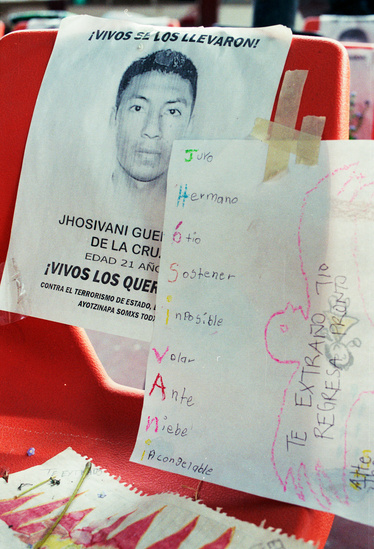 ¡VIVOS SE LOS LLEVARON!
JHOSIVANI GUE
DE LA CRU
EDAD 21 AÑO
¡VIVOS LOS QUER
CONTRA EL TERRORISMO DE ESTADO,
AYOTZINAPA SOMXS TOD
Juro
Hermano
ó tio
Sostener
imposible
Volar
Ante
niebe
iAcongelable
TE EXTRAÑO TIO
REGRESA PRONTO
Atte: